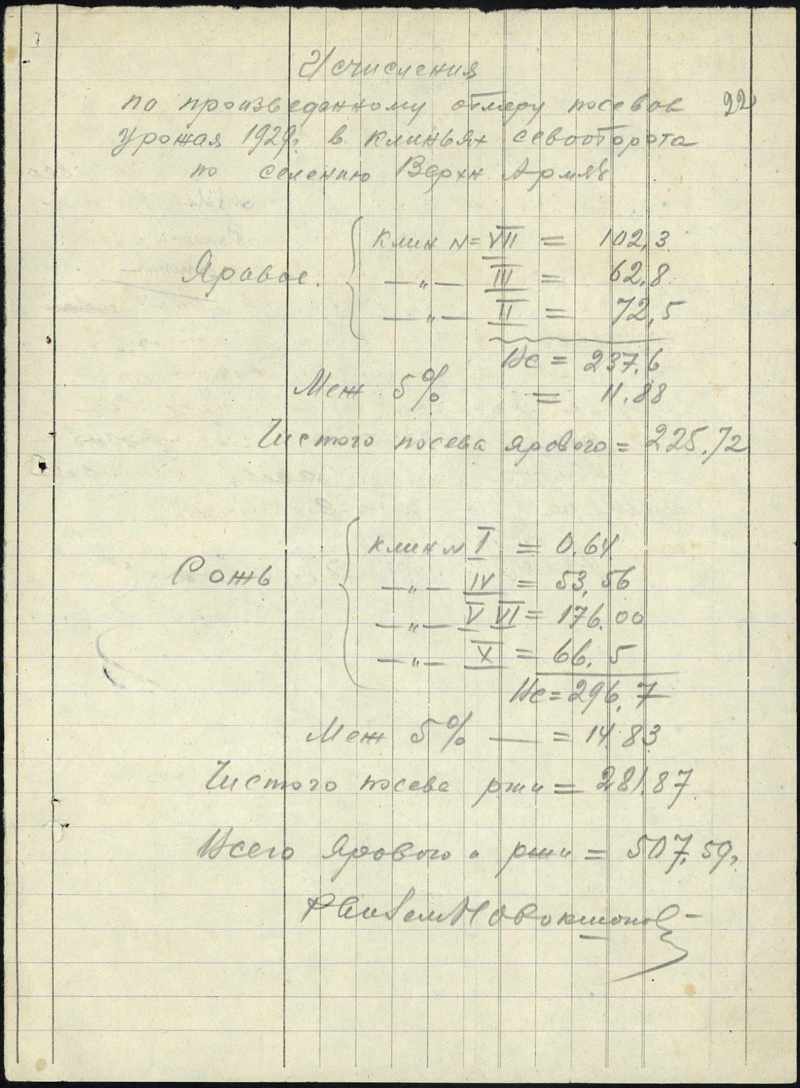 Исчисления
по произведенному обмеру посевов 22
урожая 1929г. в клиньях севооборота
по селению Верхн Армяг
Яровое. Клин N= VII = 102,3
—„— III = 62.8
—„— II = 72,5
Ис = 237.6
Меж 5% = 11.88
Чистого посева ярового = 225.72
Рожь Клин N I = 0.64
—„— IV = 53,56
—„— V VI = 176.00
—„— X = 66.5
Ис = 296,7
Меж 5% — = 14.83
Чистого посева ржи = 281.87
Всего Ярового и ржи = 507,59,